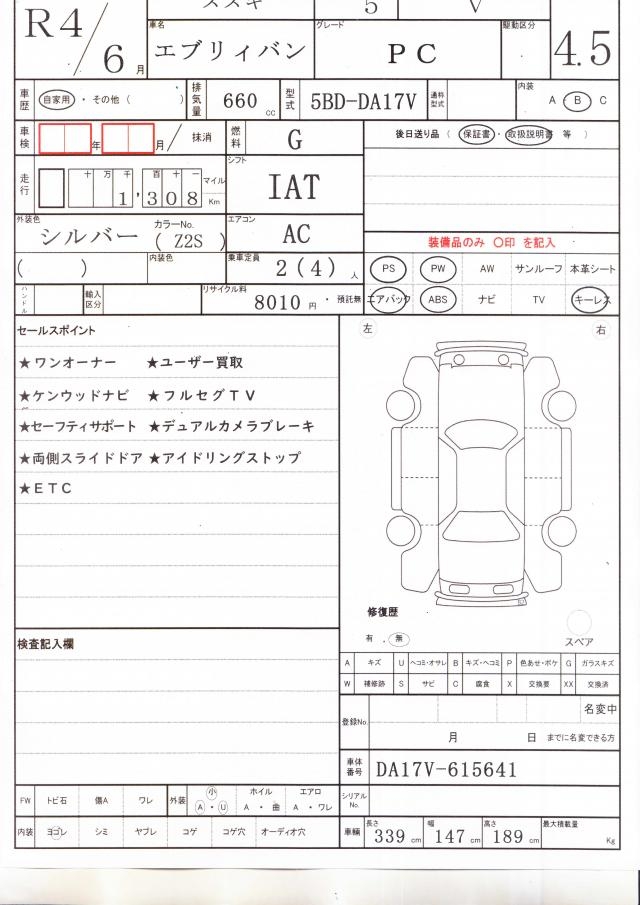 R4/6月
スズキ 5 V
車名 エブリィバン グレード PC 駆動区分 4.5
車歴 自家用・その他( ) 排気量 660 cc 型式 5BD-DA17V 通称型式 内装 A・B C
車検 年 月/ 抹消 燃料 G 後日送り品(保証書・取扱説明書 等)
走行 十 万 千 百 十 一 マイル Km 1,308 シフト IAT
外装色 シルバー カラーNo. (Z2S) エアコン AC 装備品のみ 〇印 を記入
( ) 内装色 乗車定員 2(4)人 PS PW AW サンルーフ 本革シート
ハンドル 輸入区分 リサイクル料 8010円・預託無 エアバック ABS ナビ TV キーレス
セールスポイント 左 右
★ワンオーナー ★ユーザー買取
★ケンウッドナビ ★フルセグTV
★セーフティサポート ★デュアルカメラブレーキ
★両側スライドドア ★アイドリングストップ
★ETC
修復歴
有・無 スペア
検査記入欄
A キズ U ヘコミ・オサレ B キズ・ヘコミ P 色あせ・ボケ G ガラスキズ
W 補修跡 S サビ C 腐食 X 交換要 XX 交換済
登録No. 名変中
月 日 までに名変できる方
車体番号 DA17V-615641
FW トビ石 傷A ワレ 外装 小 A・U ホイル A・曲 エアロ A・ワレ シリアルNo.
内装 ヨゴレ シミ ヤブレ コゲ コゲ穴 オーディオ穴 車輌 長さ 339 cm 幅 147 cm 高さ 189 cm 最大積載量 Kg